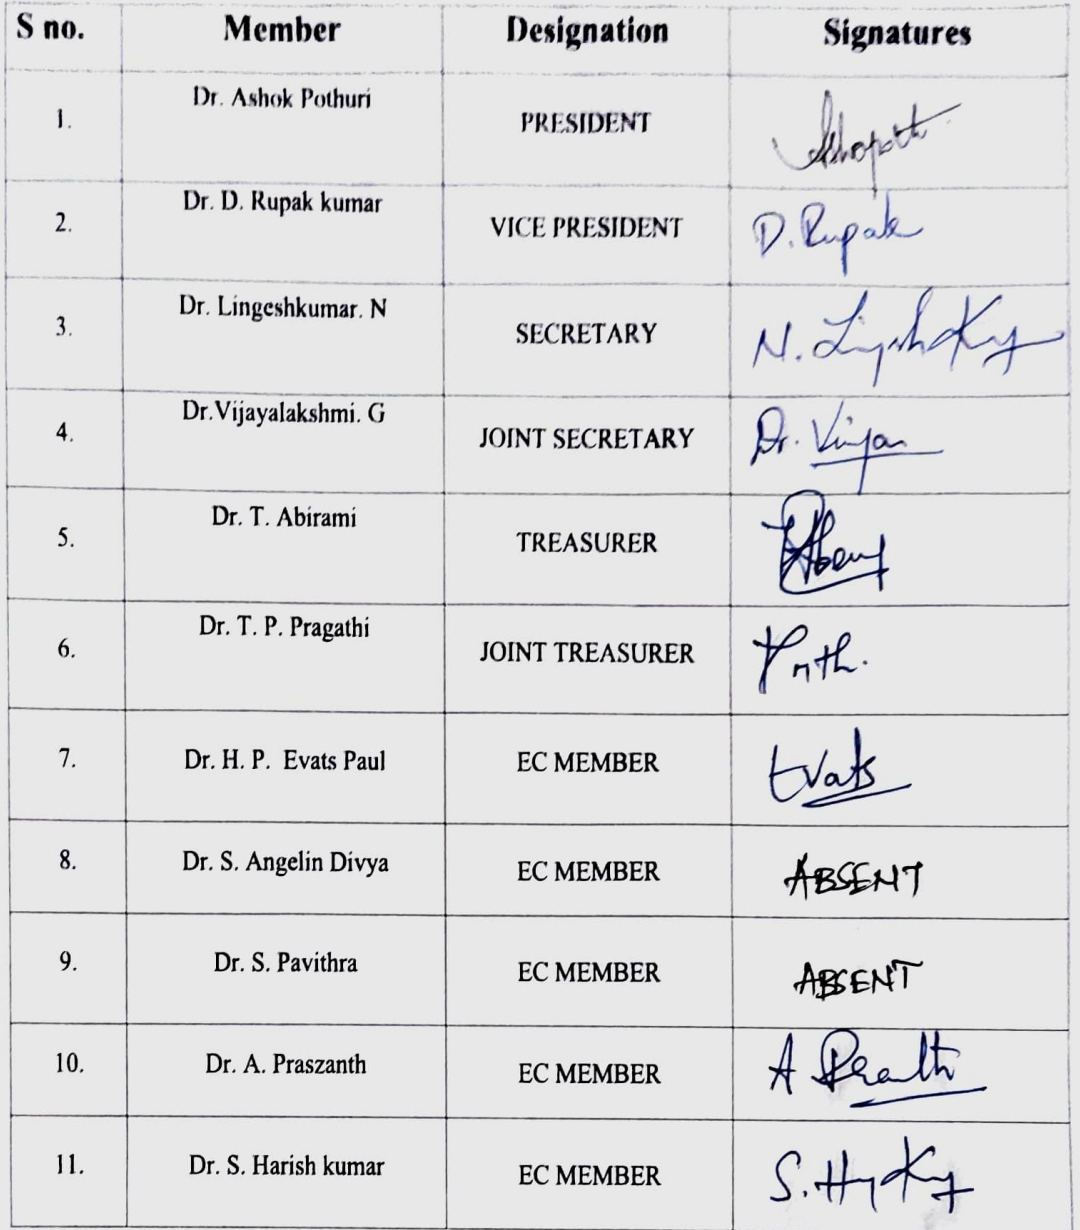 S no. Member Designation Signatures
1. Dr. Ashok Pothuri PRESIDENT
2. Dr. D. Rupak kumar VICE PRESIDENT D. Rupak
3. Dr. Lingeshkumar. N SECRETARY N.
4. Dr.Vijayalakshmi. G JOINT SECRETARY Dr.
5. Dr. T. Abirami TREASURER
6. Dr. T. P. Pragathi JOINT TREASURER
7. Dr. H. P. Evats Paul EC MEMBER Evats
8. Dr. S. Angelin Divya EC MEMBER ABSENT
9. Dr. S. Pavithra EC MEMBER ABSENT
10. Dr. A. Praszanth EC MEMBER A
11. Dr. S. Harish kumar EC MEMBER S.